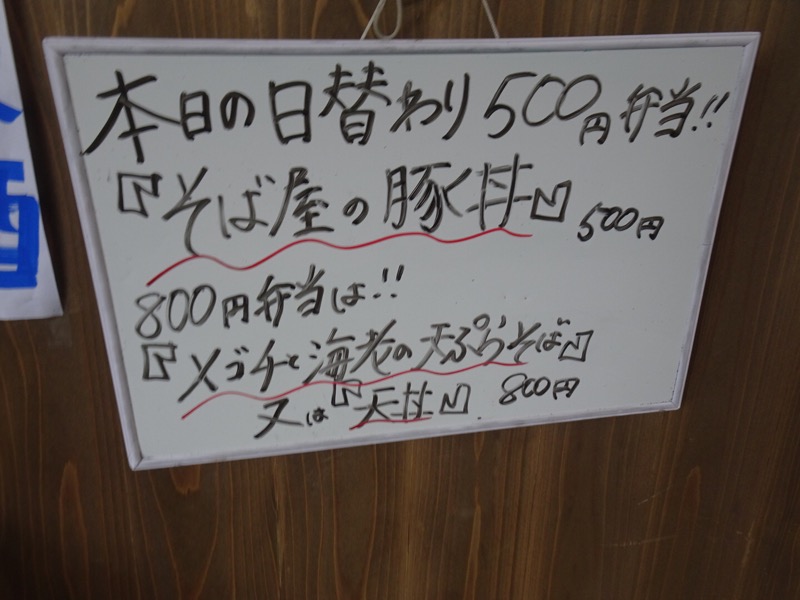 本日の日替わり500円弁当!!
『そば屋の豚丼』500円
800円弁当は!!
『メゴチと海老の天ぷらそば』
又は『天丼』800円